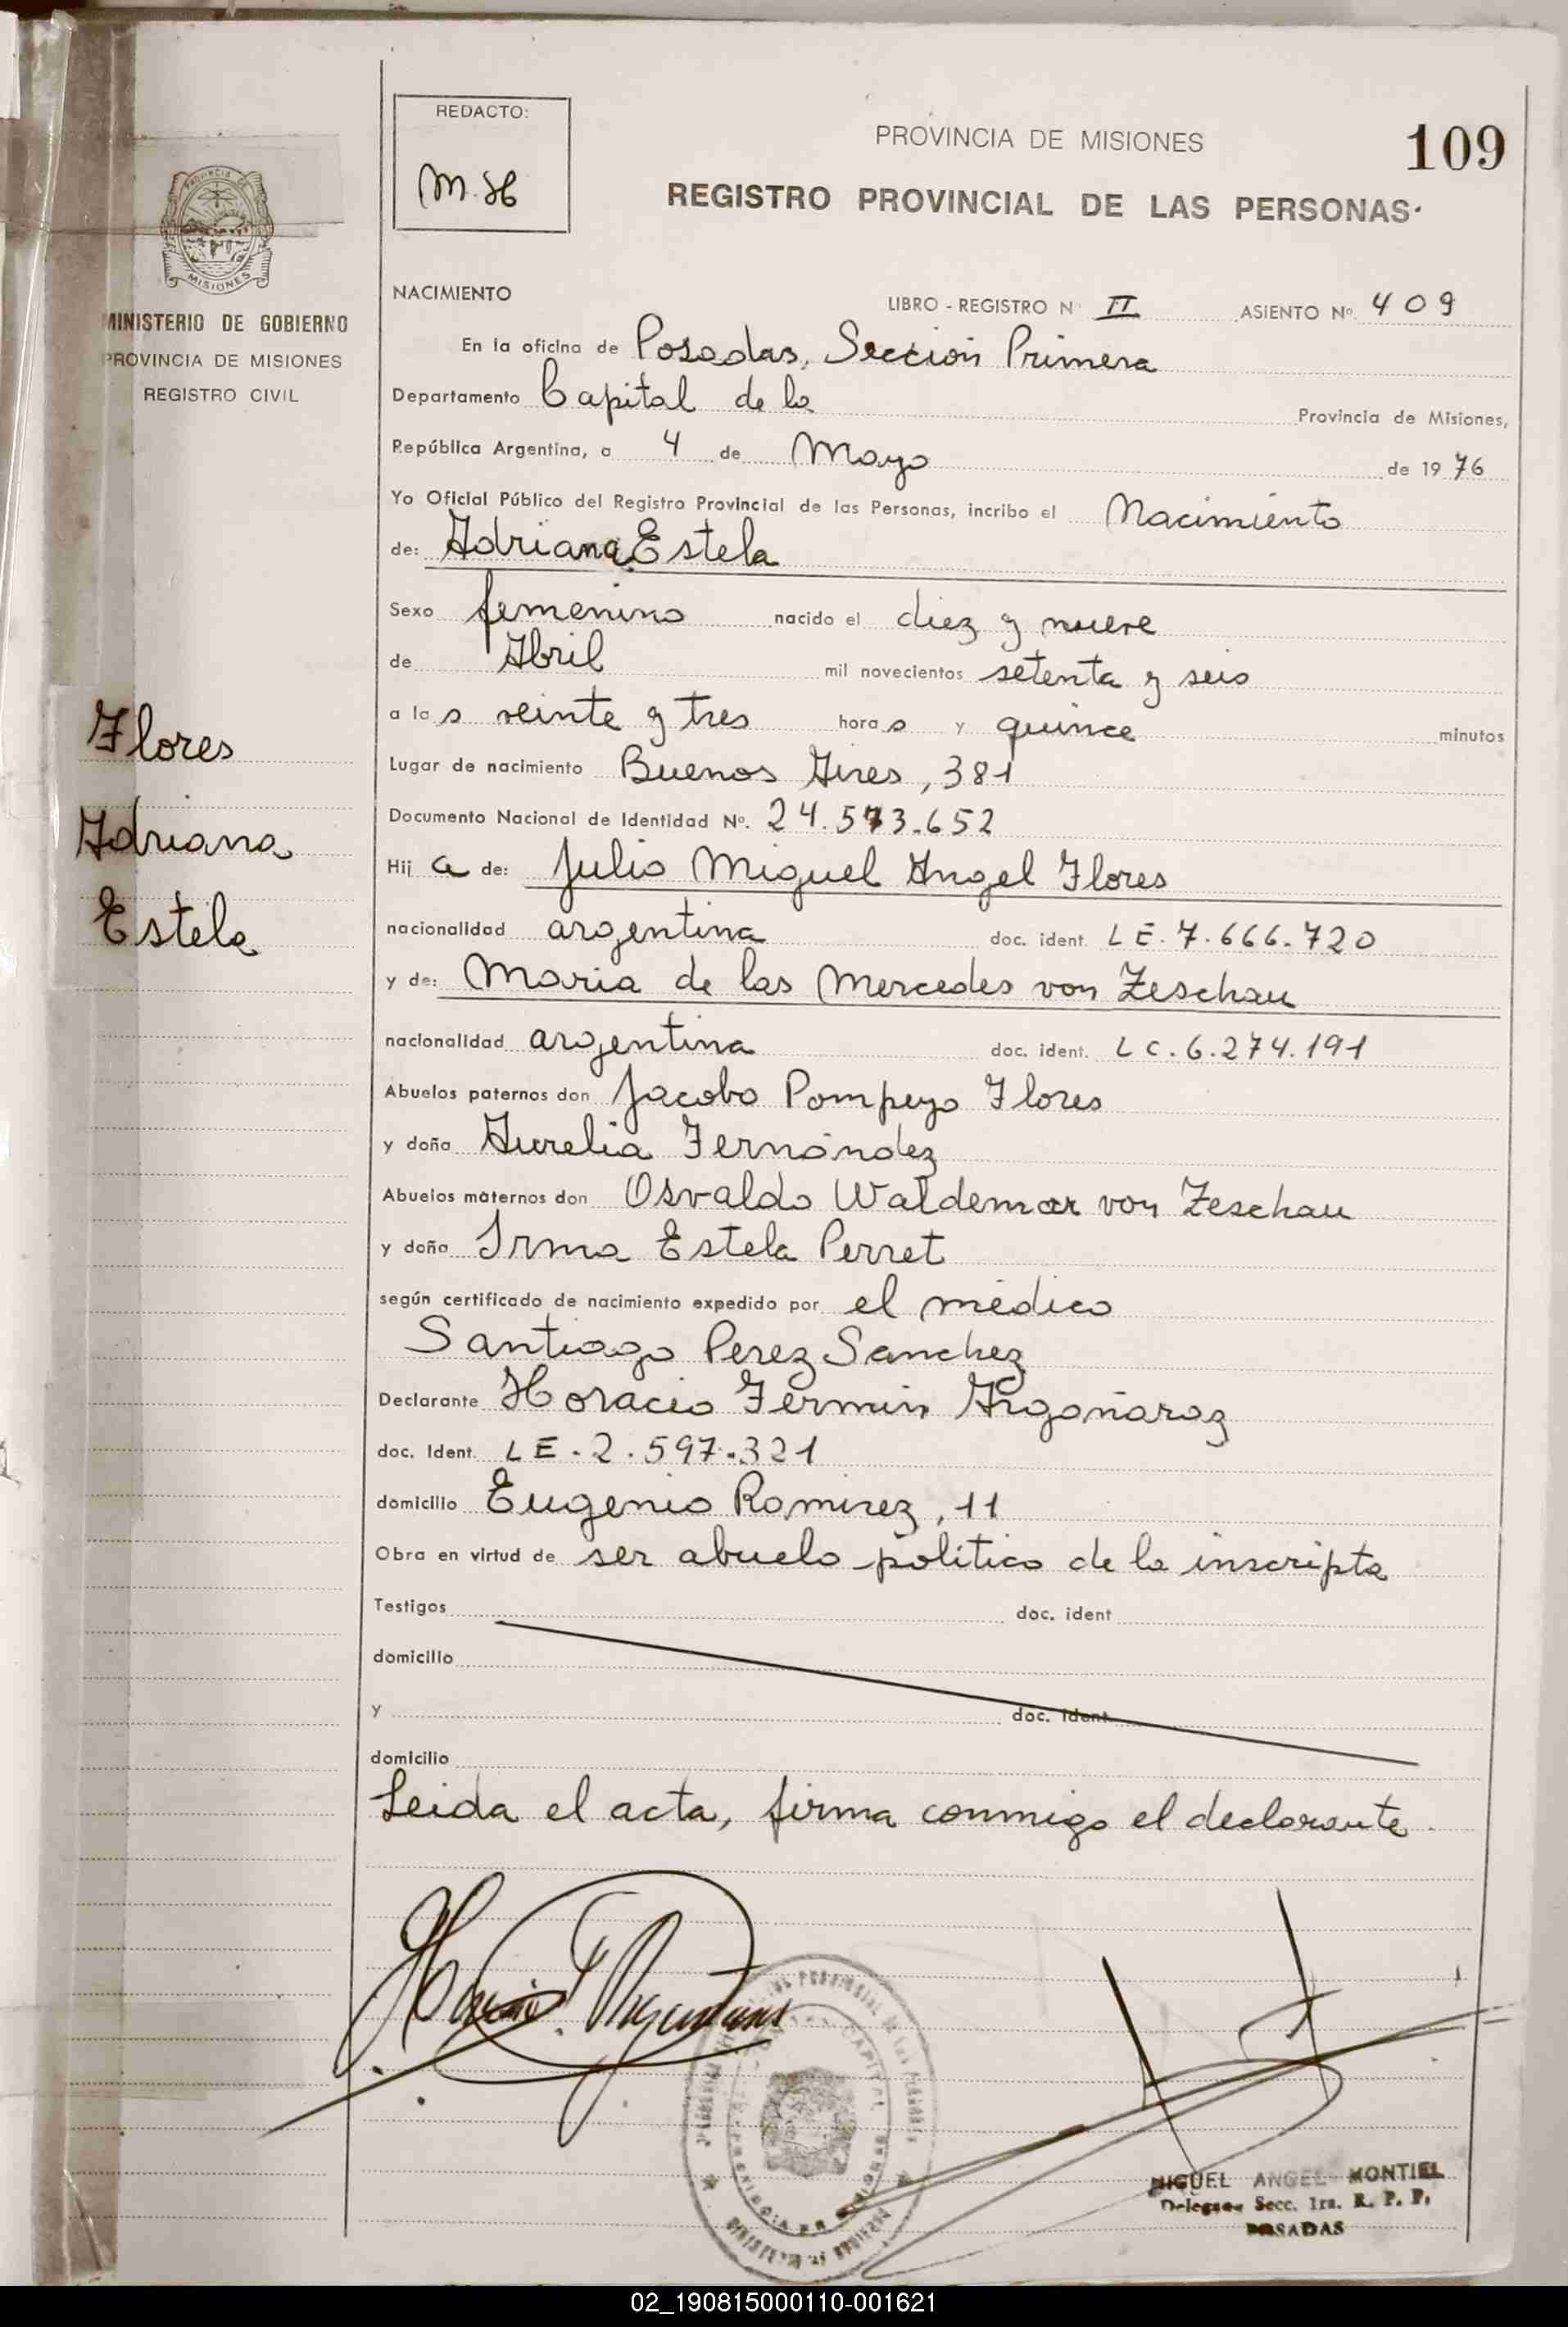 REDACTO:
M.H
PROVINCIA DE MISIONES
109
REGISTRO PROVINCIAL DE LAS PERSONAS
PROVINCIA DE
MISIONES
MINISTERIO DE GOBIERNO
PROVINCIA DE MISIONES
REGISTRO CIVIL
NACIMIENTO
LIBRO - REGISTRO Nº II ASIENTO Nº 409
En la oficina de Posadas, Sección Primera
Departamento Capital de la Provincia de Misiones,
República Argentina, a 4 de Mayo de 1976
Yo Oficial Público del Registro Provincial de las Personas, incribo el Nacimiento
de: Adriana Estela
Sexo femenino nacido el diez y nueve
de Abril mil novecientos setenta y seis
a las veinte y tres horas y quince minutos
Lugar de nacimiento Buenos Aires, 381
Documento Nacional de Identidad Nº. 24.573.652
Hija de: Julio Miguel Angel Flores
nacionalidad argentina doc. ident. LE. 7.666.720
y de: Maria de las Mercedes von Zeschau
nacionalidad argentina doc. ident. LC. 6.274.191
Abuelos paternos don Jacobo Pompeyo Flores
y doña Aurelia Fernández
Abuelos maternos don Osvaldo Waldemar von Zeschau
y doña Irma Estela Perret
según certificado de nacimiento expedido por el médico
Santiago Perez Sanchez
Declarante Horacio Fermin Argañaraz
doc. Ident. LE. 2.597.321
domicilio Eugenio Ramirez, 11
Obra en virtud de ser abuelo político de la inscripta
Testigos doc. ident
domicilio
y doc. ident
domicilio
Leida el acta, firma conmigo el declarante.
Flores
Adriana
Estela
MIGUEL ANGEL MONTIEL
Delegado Secc. 1ra. R. P. P.
POSADAS
02_190815000110-001621